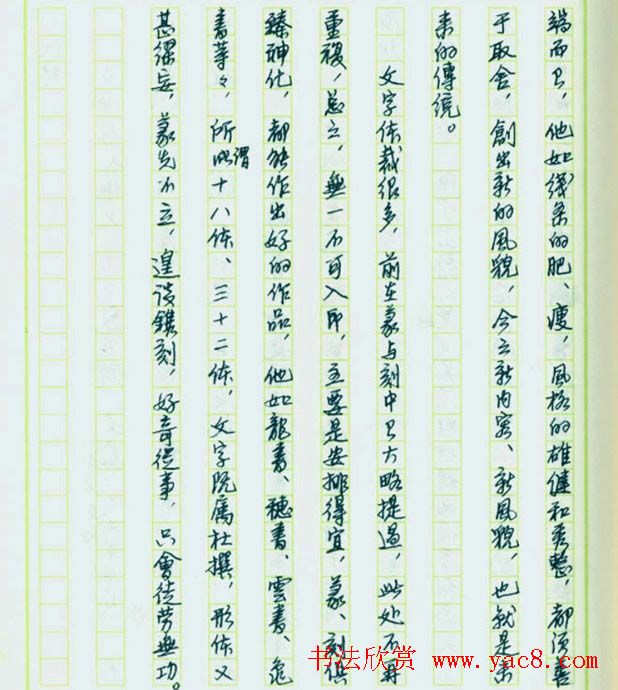 端而已,他如线条的肥、瘦,風格的雄健和秀整,都須善
于取舍,創出新的風貌,今云新内容、新風貌,也就是未
来的傳統。
文字体裁很多,前在篆与刻中已大略提過,此处不再
重複,总之,無一不可入印,主要是安排得宜,篆、刻俱
臻神化,都能作出好的作品,他如龍書、穗書、雲書、龟
書等々,所謂十八体、三十二体,文字既屬杜撰,形体又
甚謬妄,篆先不立,遑談鐫刻,好奇從事,只會徒劳無功。
书法欣赏 www.yac8.com